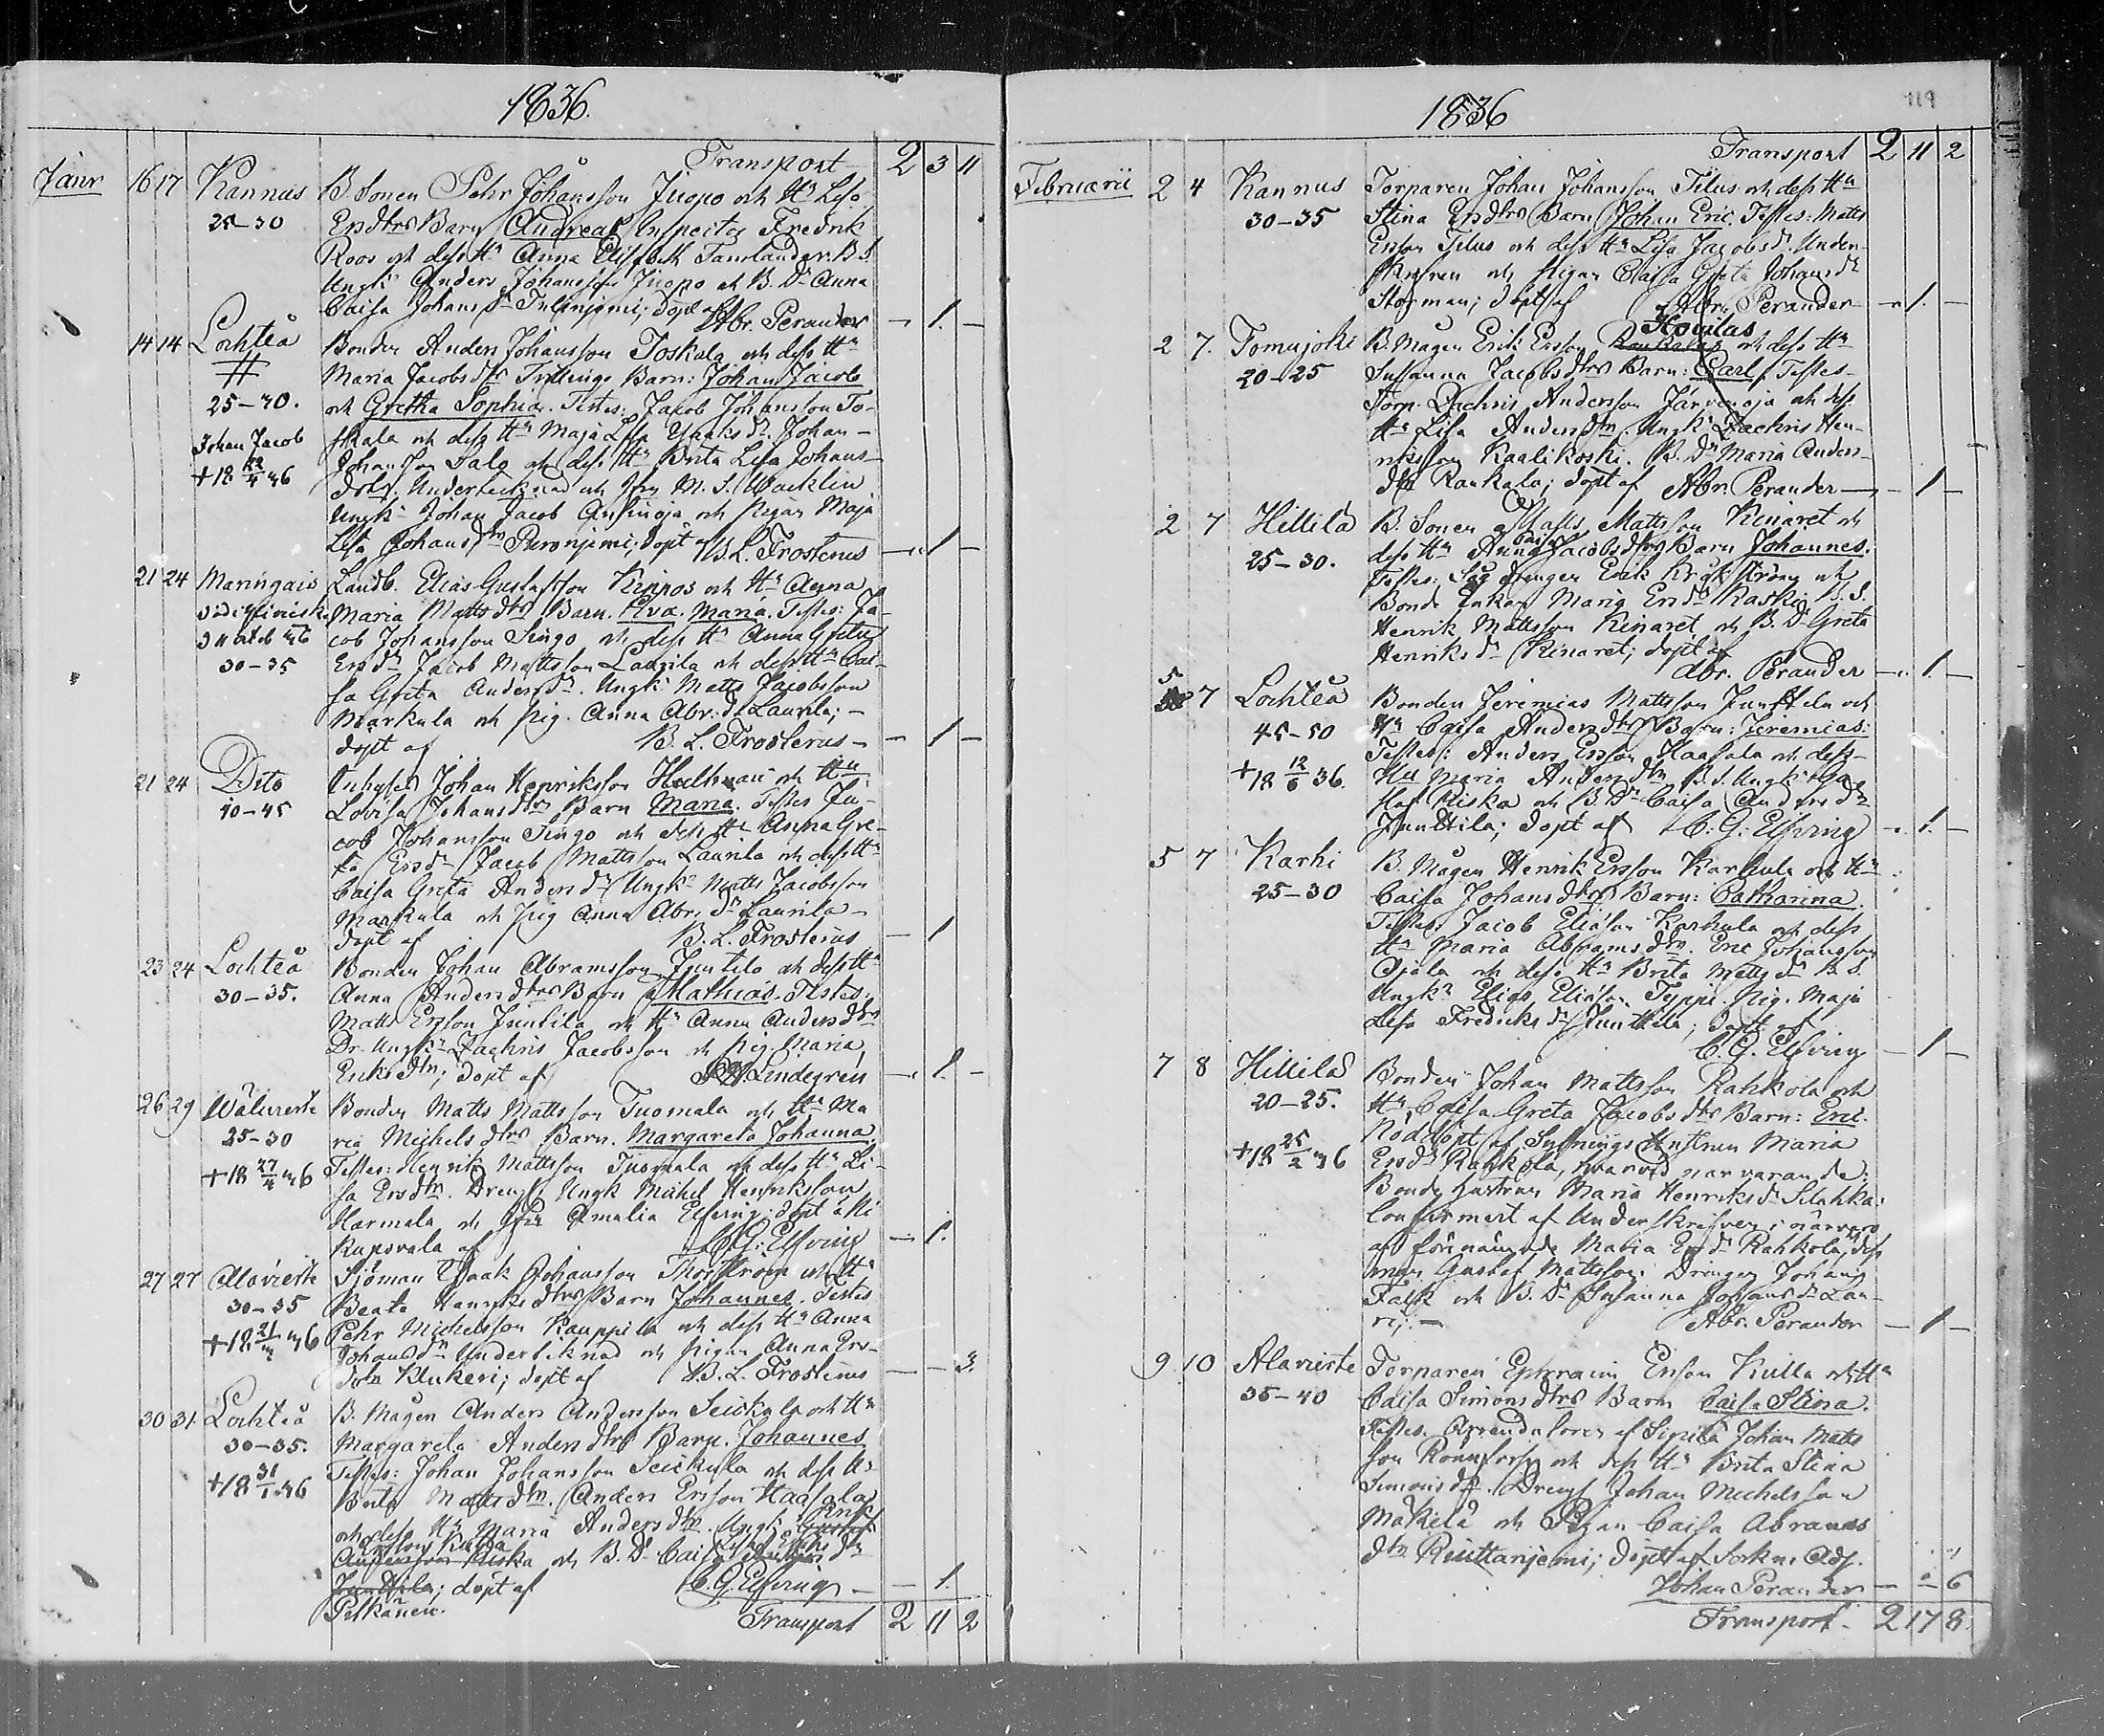 1836.
Transport 2 3 11
Janr 16 17 Kannus B. Sonen Pehr Johansson Juopo och Hu Lisa
25-30 Ersdtrs Barn Andreas Inspector Fredrik
Roos och dess Hu Anna Elisabeth Tamlander. B. S.
Ungk: Anders Johansson Juopo och B. Dr Anna
Caisa Johans Dr; döpt af Abr. Perander — 1. —
14 14 Lochteå Bonden Anders Johansson Toskala och dess Hu
# Maria Jacobsdtrs Tvillinge Barn: Johan Jacob
25-30. och Gretha Sophia. Testes: Jacob Johansson To-
Johan Jacob skala och dess Hu Maja Lisa Isaks dr. Johan
+18 4 36 Johansson Salo och dess Hu Brita Lisa Johans
dotr. Undertecknad och M. S. Wacklin
Ungk: Johan Jacob och Pigan Maja
Lisa Johans dtr; döpt af B. L. Frosterus — 1 —
21 24 Maringais Landb. Elias Gustafsson Kippos och Hu Anna
Maria Mattsdtrs Barn. Eva Maria. Testes: Ja-
cob Johansson Singo och dess Hu Anna Greta
30-35 Ersdr Jacob Mattsson Laurila och dess Hu Cai-
sa Greta Andersdr. Ungk: Matts Jacobsson
Markula och Pig. Anna Abr: dr Laurila; —
döpt af B. L. Frosterus — — 1 —
21 24 Dito Inhyses Johan Henriksson och Hu
40-45 Lovisa Johansdtrs Barn Maria. Testes Ja-
cob Johansson Singo och dess Hu Anna Gre-
ta Ersdr Jacob Mattsson Laurila och dess Hu
Caisa Greta Andersdr Ungk: Matts Jacobsson
Markula och Pig Anna Abr: dr Laurila —
döpt af B. L. Frosterus — 1
23 24 Lochteå Bonden Johan Abramsson Juntila och dess Hu
30-35. Anna Andersdtrs Barn Mathias. Testes:
Matts Ersson Juntila och Hu Anna Andersdtr
Dr. Ungk: Zachris Jacobsson och Pig. Maria
Eriksdtr; döpt af Lindegren — 1. —
26 29 Bonden Matts Mattsson Tuomala och Hu Ma
25-30 ria Michelsdtrs Barn. Margareta Johanna.
+18 27/4 36 Testes: Henrik Mattsson Tuomala och dess Hu Li-
sa Ersdtr. Dreng: Ungk Michel Henriksson
Harmala och Amalia Elfving; döpt
af C. G. Elfving — 1.
27 27 Alavieste Sjöman Isaak Johansson Thorström och Hu
30-35 Beata Henriksdtrs Barn Johannes. Testes
+18 21 36 Pehr Michelsson Kauppila och dess Hu Anna
Johansdr Undertecknad och Pigan Anna Ers-
dotr; döpt af B. L. Frosterus — — 3.
30 31 Lochteå B. Mågen Anders Andersson Seickula och Hu
30-35. Margareta Andersdtrs Barn. Johannes
+18 31/1 36 Testes: Johan Johansson Seickula och dess Hu
Brita Mattsdtr. Anders Ersson Haapala
och dess Hu Maria Andersdtr. Ungk:
Riska och B. Dr Caisa dtr
Junttila; döpt af C. G. Elfving — — 1.
Pelkänen.
Transport 2 11 2
1836
119
Transport 2 11 2
Februarii 2 4 Kannus Torparen Johan Johansson Tilus och dess Hu
30-35 Stina Ersdtrs Barn Johan Eric. Testes: Matts
Ersson Tilus och dess Hu Lisa Jacobsd. Under-
skrifven och Pigan Caisa Greta Johansdr
Storman; döpt af Abr. Perander — 1. —
Hovilas
2 7. Tomujoki B. Mågen Erik Ersson Raukalas och dess Hu
20-25 Susanna Jacobsdtrs Barn: Carl. Testes
Torp. Zachris Andersson Järvenoja och dess
Hu Lisa Andersdtr. Ungk: Zachris Hen-
riksson Kaalikoski. B. Dr Maria Anders-
dtr Raukala; döpt af Abr. Perander — 1 —
2 7 Hillilä B. Sonen Matts Mattsson Kinaret och
Caisa
25-30. dess Hu Anna Jacobsdtrs Barn Johannes.
Testes: Erik och
Bonde Enkan Maria Ersdr Raski. B. S.
Henrik Mattsson Kinaret och B. Dr Greta
Henriksdr Kinaret; döpt af
Abr. Perander — 1. —
5 7 Lochteå Bonden Jeremias Mattsson Junttila och
45-50 Hu Caisa Andersdtrs Barn: Jeremias:
Testes: Anders Ersson Haapala och dess
+18 12/6 36. Hu Maria Andersdtr B. S. Ungk: Gu
staf Riska och B. Dr Caisa Anders dr
Junttila; döpt af C. G. Elfving — 1. —
5 7 Karhi B. Mågen Henrik Ersson Karhula och Hu
25-30 Caisa Johansdtrs Barn: Catharina.
Testes: Jacob Eliasson Karhula och dess
Hu Maria Abramsdtr. Eric Johansson
Ojala och dess Hu Brita Mattsdr B. S.
Ungk: Elias Eliasson Typpi. Pig. Maja
Lisa Fredriksdr Junttila; döpt af
C. G. Elfving — 1 —
7 8 Hillilä Bonden Johan Mattsson Rahkola och
20-25. Hu Caisa Greta Jacobsdtrs Barn: Eric.
Nöddöpt af Hustrun Maria
+18 25/2 36 Ersdr Rahkola, hvarvid närvarande:
Bonde hustrun Maria Henriksdr Silahka:
Confirmert af Underskrifven i närvaro
af förnämnde Maria Ersdr Rahkola, dess
man Gustaf Mattsson: Drängen Johan
Falk och B. Dr Susanna Johansdr Lau-
ri; — Abr. Perander — 1 —
9 10 Alavieste Torparen Ephraim Ersson Kulla och Hu
35-40 Caisa Simonsdtrs Barn Caisa Stina.
Testes. Arrendatoren af Sipilä Johan Matts
son Rönnfors och dess Hu Brita Stina
Simonsdr. Dreng Johan Michelsson
Mäkelä och Pigan Caisa Abrams
dtr Ruittaniemi; döpt af Sockne Adj.
Johan Perander — — 6
Transport 2 17 8.